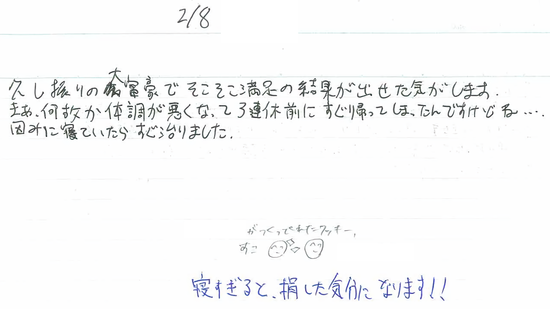 2/8
久し振りの大富豪でそこそこ満足の結果が出せた気がします.
まあ、何故か体調が悪くなって3連休前にすぐり帰ってしまったんですけどね….
因みに寝ていたらすぐ治りました.
がつくってくれたクッキー,
寝すぎると、損した気分になります!!